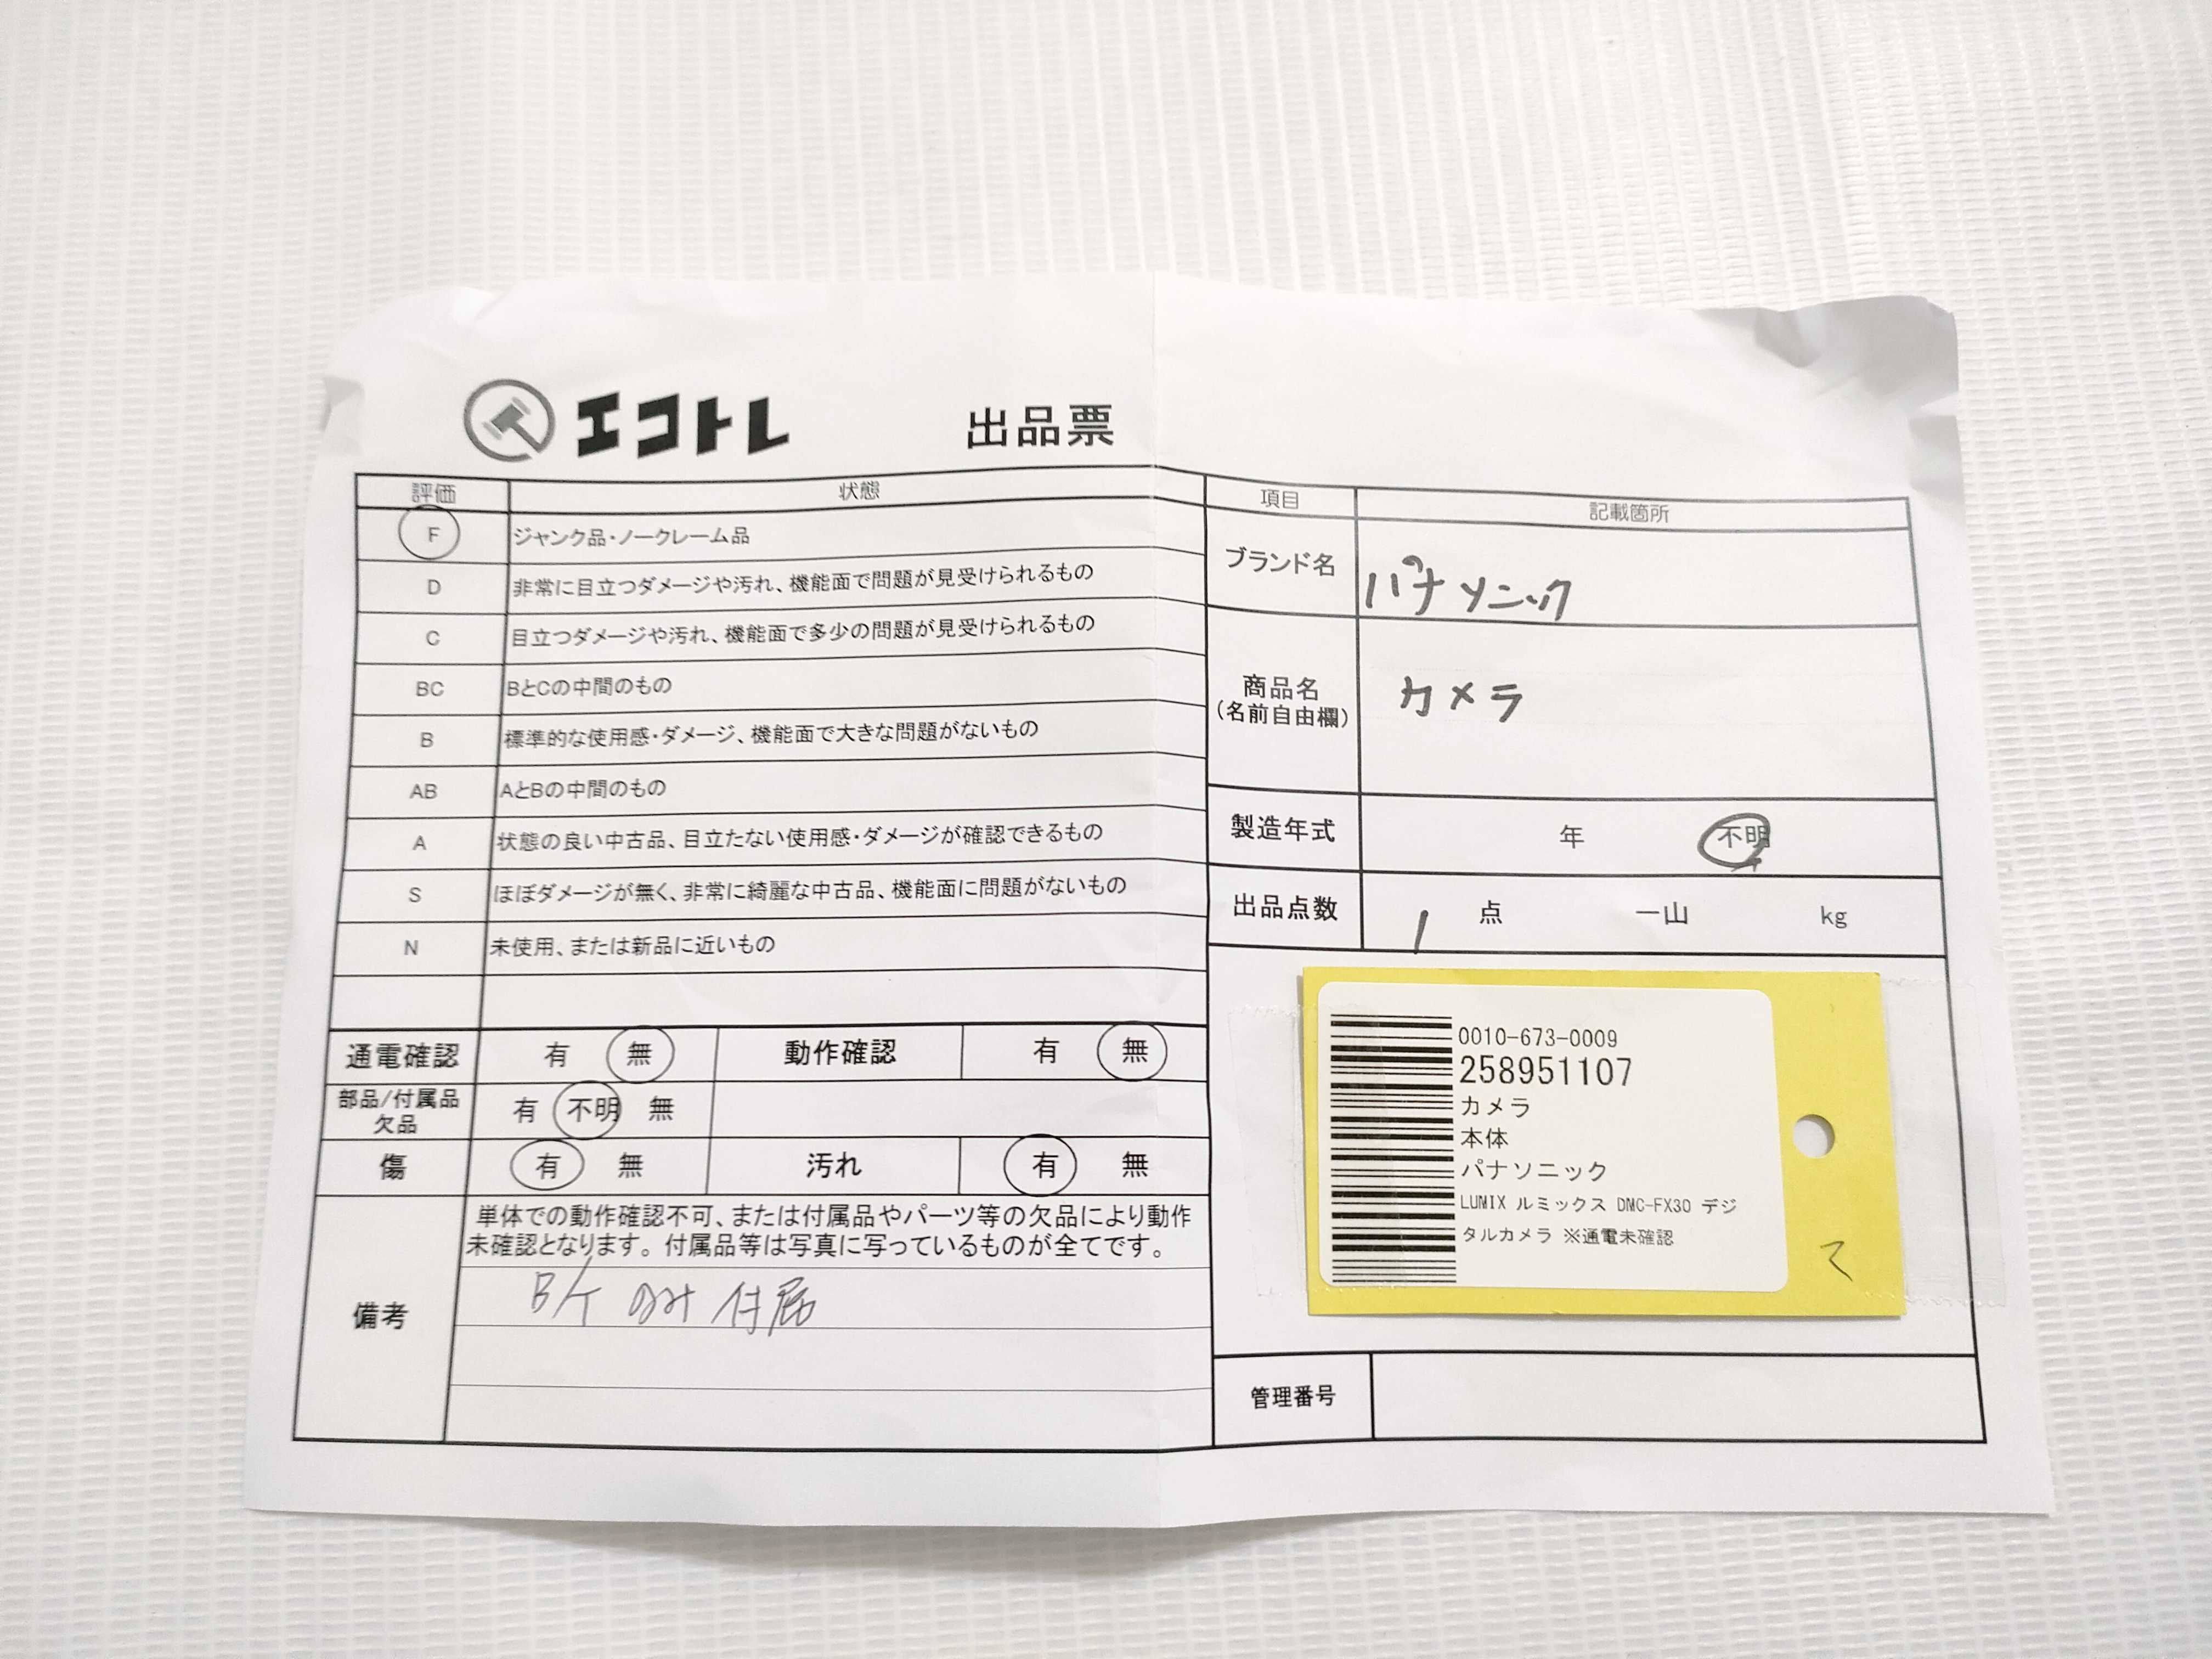 エコトレ 出品票
評価 状態
F ジャンク品・ノークレーム品
D 非常に目立つダメージや汚れ、機能面で問題が見受けられるもの
C 目立つダメージや汚れ、機能面で多少の問題が見受けられるもの
BC BとCの中間のもの
B 標準的な使用感・ダメージ、機能面で大きな問題がないもの
AB AとBの中間のもの
A 状態の良い中古品、目立たない使用感・ダメージが確認できるもの
S ほぼダメージが無く、非常に綺麗な中古品、機能面に問題がないもの
N 未使用、または新品に近いもの
通電確認 有 無 動作確認 有 無
部品/付属品
欠品 有 不明 無
傷 有 無 汚れ 有 無
備考
単体での動作確認不可、または付属品やパーツ等の欠品により動作
未確認となります。付属品等は写真に写っているものが全てです。
B/T のみ 付属
項目 記載箇所
ブランド名 パナソニック
商品名
(名前自由欄) カメラ
製造年式 年 不明
出品点数 1 点 一山 kg
0010-673-0009
258951107
カメラ
本体
パナソニック
LUMIX ルミックス DMC-FX30 デジ
タルカメラ ※通電未確認
て
管理番号